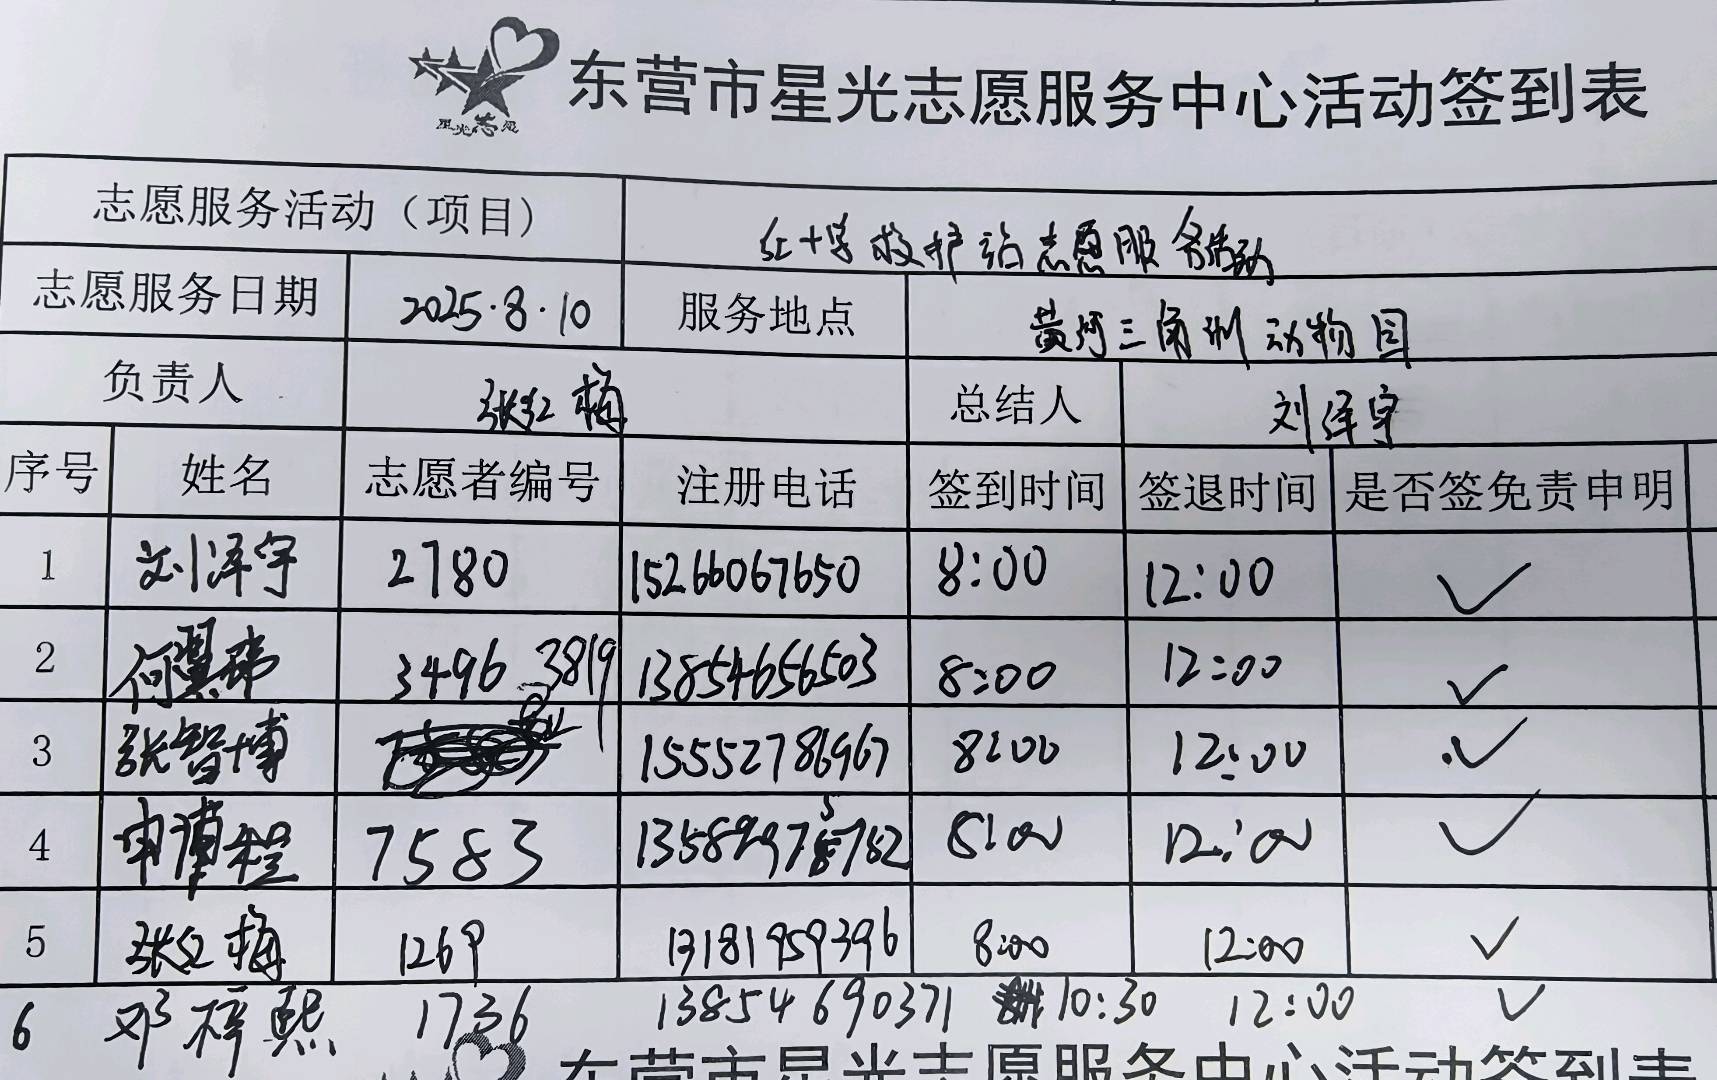 星光志愿
东营市星光志愿服务中心活动签到表
志愿服务活动（项目） 红十字救护站志愿服务活动
志愿服务日期 2025.8.10 服务地点 黄河三角洲动物园
负责人 张红梅 总结人 刘泽宇
序号 姓名 志愿者编号 注册电话 签到时间 签退时间 是否签免责申明
1 刘泽宇 2780 15266067650 8:00 12:00 ✓
2 何翼 3496 13854656503 8:00 12:00 ✓
3 张智博 3819 15552786967 8:00 12:00 ✓
4 申 程 7583 8:00 12:00 ✓
5 张红梅 1269 13181959396 8:00 12:00 ✓
6 邓梓熙 1736 13854690371 10:30 12:00 ✓
东营市星光志愿服务中心活动签到表